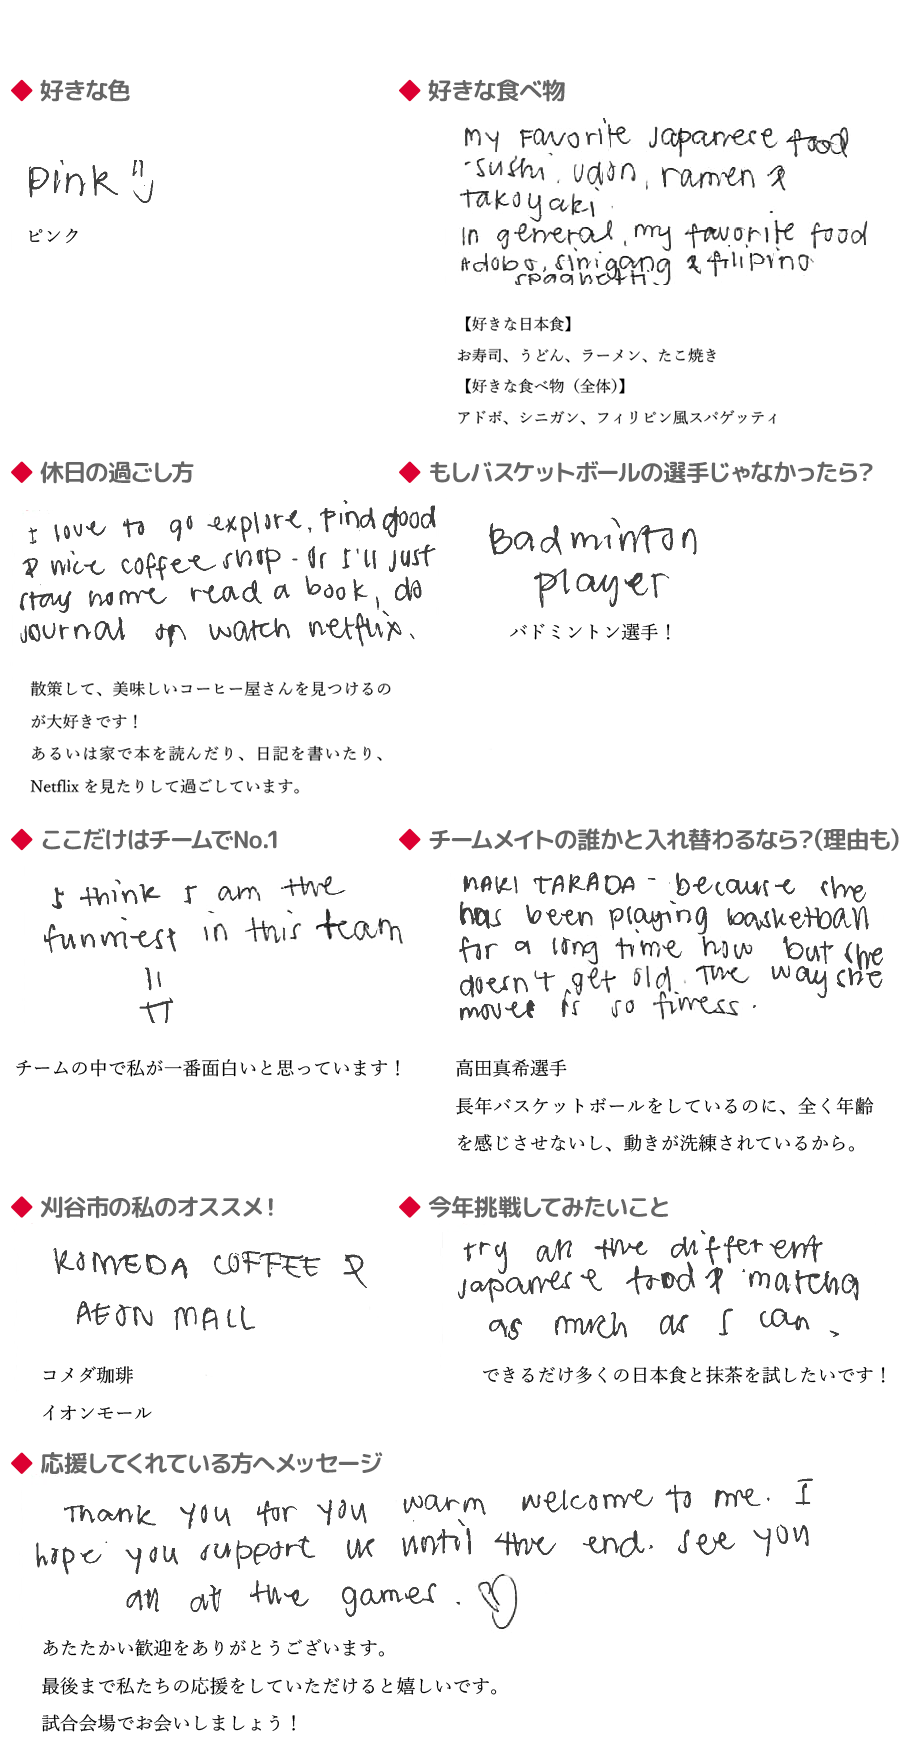 ◆ 好きな色
Pink
ピンク
◆ 好きな食べ物
My Favorite Japanese food
-sushi, udon, ramen &
takoyaki.
In general, my favorite food
Adobo, sinigang & filipino
spaghetti.
【好きな日本食】
お寿司、うどん、ラーメン、たこ焼き
【好きな食べ物（全体）】
アドボ、シニガン、フィリピン風スパゲッティ
◆ 休日の過ごし方
I love to go explore, Find good
& nice coffee shop - Or I'll just
stay home read a book, do
journal or watch netflix.
散策して、美味しいコーヒー屋さんを見つけるの
が大好きです！
あるいは家で本を読んだり、日記を書いたり、
Netflix を見たりして過ごしています。
◆ もしバスケットボールの選手じゃなかったら？
Badminton
player
バドミントン選手！
◆ ここだけはチームでNo.1
I think I am the
funniest in this team
チームの中で私が一番面白いと思っています！
◆ チームメイトの誰かと入れ替わるなら？（理由も）
MAKI TAKADA - because she
has been playing basketball
for a long time now but she
doesn't get old. The way she
moves is so finness.
高田真希選手
長年バスケットボールをしているのに、全く年齢
を感じさせないし、動きが洗練されているから。
◆ 刈谷市の私のオススメ！
KOMEDA COFFEE &
AEON MALL
コメダ珈琲
イオンモール
◆ 今年挑戦してみたいこと
Try all the different
Japanese food & matcha
as much as I can.
できるだけ多くの日本食と抹茶を試したいです！
◆ 応援してくれている方へメッセージ
Thank you for you warm welcome to me. I
hope you support us until the end. See you
all at the games.
あたたかい歓迎をありがとうございます。
最後まで私たちの応援をしていただけると嬉しいです。
試合会場でお会いしましょう！